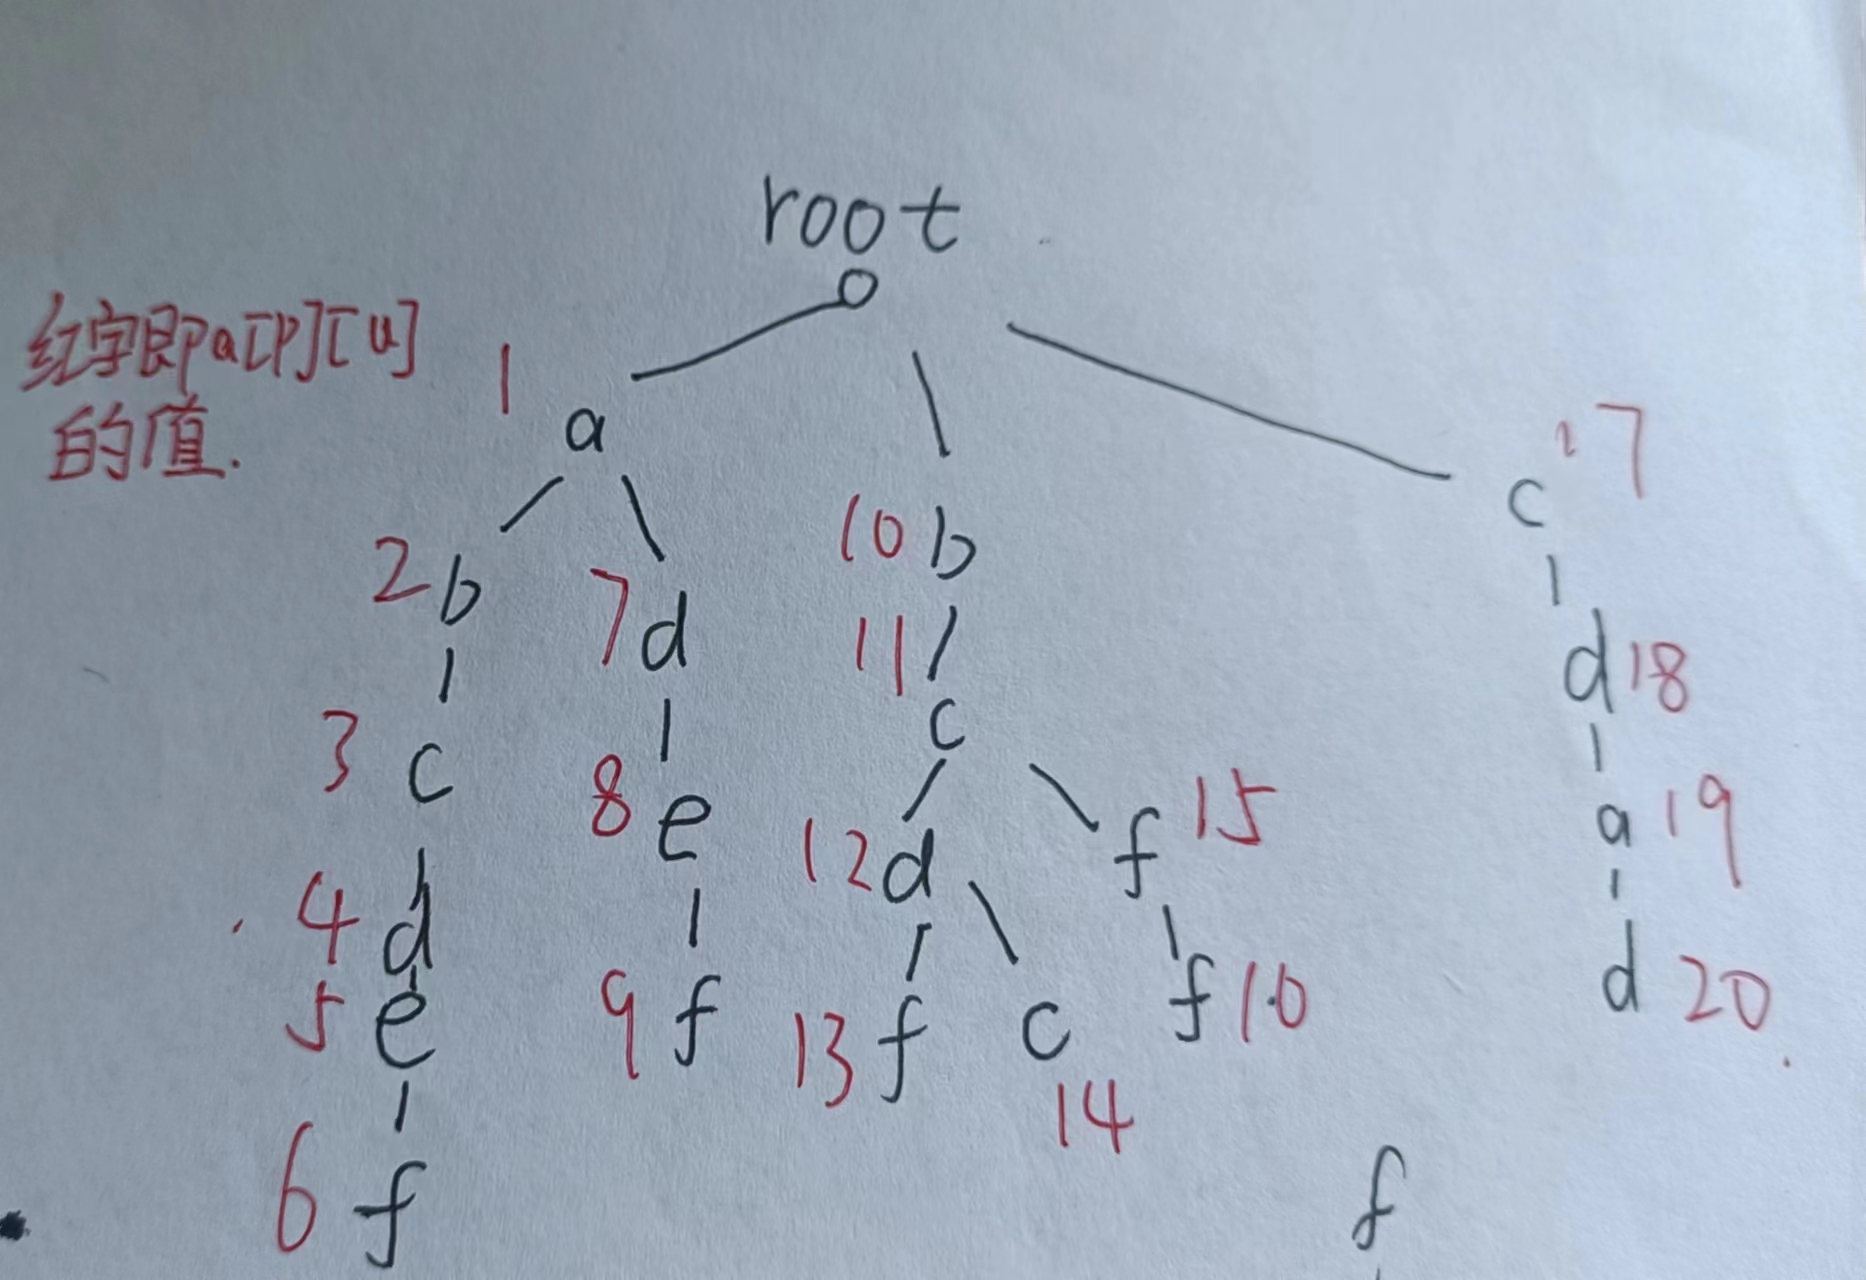 root
红字即a[p][u]
的值.
1
a
17
c
10 b
2 b
7 d
11
d 18
c
3 c
8 e
f 15
a 19
12 d
4 d
5 e
9 f
13 f
c
f 10
d 20
14
6 f
f